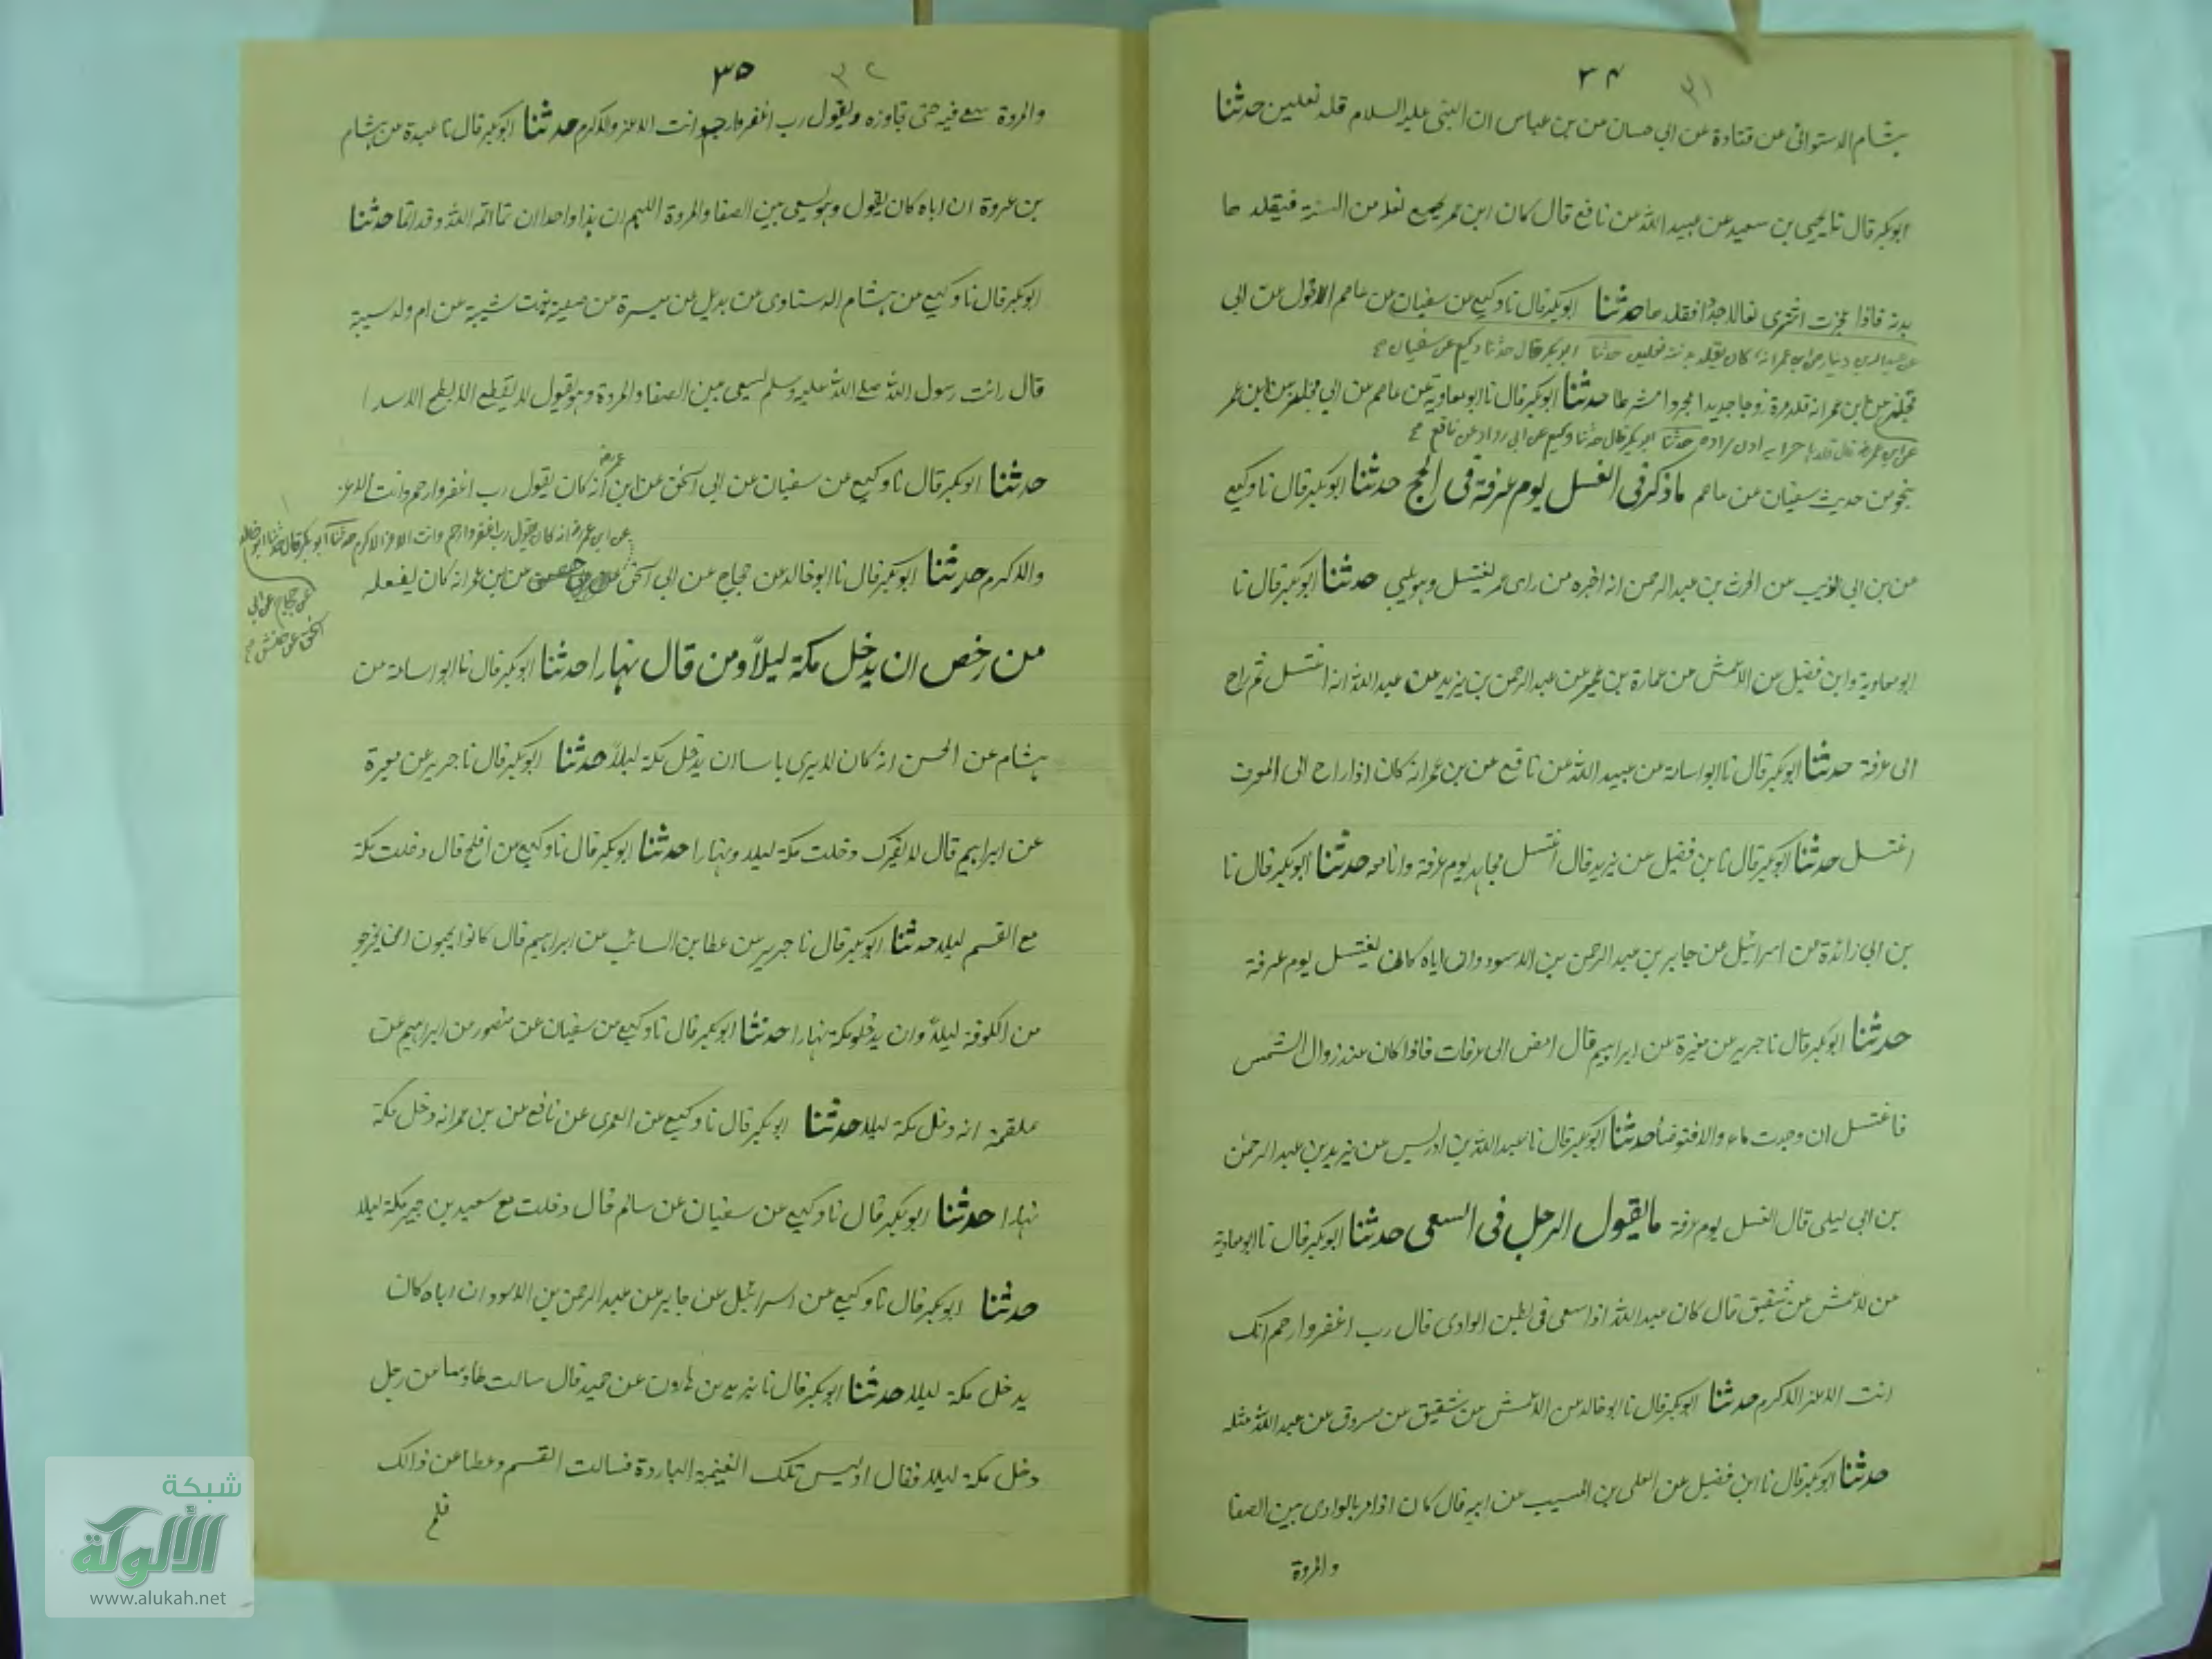 ٣٤
٣١
هشام الدستوائى عن قتادة عن ابي حسان عن بن عباس ان النبى عليه السلام قلد نعلين حدثنا
ابوبكر قال نا يحيى بن سعيد عن عبيد الله عن نافع قال كان ابن عمر يجمع نعله من السنة فيقلدها
بدنه فاذا عجزت اشترى نعالا جددا فقلدها حدثنا ابوبكر قال نا وكيع عن سفيان عن عاصم الاحول عن ابى
عن عبد الله بن دينار عن ابن عمر انه كان يقلد بدنته نعلين حدثنا ابوبكر قال حدثنا وكيع عن سفيان صح
مجلز عن ابن عمر انه قلد مرة زوجا جديدا حدثنا ابوبكر قال نا ابو معاوية عن عاصم عن ابي مجلز عن ابن عمر
حدثنا ابوبكر قال حدثنا وكيع عن ابى رواد عن نافع صح
بنحو من حديث سفيان عن عاصم ما ذكر فى الغسل يوم عرفة فى الحج حدثنا ابوبكر قال نا وكيع
عن بن ابى ذويب عن الحرث بن عبد الرحمن انه اخبره من راى عمر يغتسل وهو يلبي حدثنا ابوبكر قال نا
ابو معاوية وابن فضيل عن الاعمش عن عمارة بن عمير عن عبد الرحمن بن يزيد عن عبد الله انه اغتسل ثم راح
الى عرفة حدثنا ابوبكر قال نا ابو اسامة عن عبيد الله عن نافع عن بن عمر انه كان اذا راح الى الموت
اغتسل حدثنا ابوبكر قال نا بن فضيل عن يزيد قال اغتسل مجاهد يوم عرفة وانا معه حدثنا ابوبكر قال نا
بن ابي زائدة عن اسرائيل عن جابر بن عبد الرحمن بن الاسود وان اباه كان يغتسل يوم عرفة
حدثنا ابوبكر قال نا جرير عن مغيرة عن ابراهيم قال امض الى عرفات فاذا كان عند زوال الشمس
فاغتسل ان وجدت ماء والا فتوضأ حدثنا ابوبكر قال نا عبد الله بن ادريس عن يزيد بن عبد الرحمن
بن ابى ليلى قال الغسل يوم عرفة ما يقول الرجل فى السعى حدثنا ابوبكر قال نا ابو معاوية
عن لاعمش عن شقيق قال كان عبد الله اذا سعى فى بطن الوادى قال رب اغفر وارحم انك
انت الاعز الاكرم حدثنا ابوبكر قال نا ابو خالد عن الاعمش عن شقيق عن مسروق عن عبد الله مثله
حدثنا ابوبكر قال نا ابن فضيل عن العلى بن المسيب عن ابيه قال كان اذا مر بالوادى بين الصفا
والمروة
٣٥
٣٢
والمروة سعى فيه حتى تجاوزه ويقول رب اغفر وارحم وانت الاعز والاكرم حدثنا ابوبكر قال نا عبيدة عن هشام
بن عروة ان اباه كان يقول وهو يسعى بين الصفا والمروة اللهم ان هذا واحدا ان تما اتمه الله وقد اتما حدثنا
ابوبكر قال نا وكيع عن هشام الدستاوى عن بديل عن ميسرة عن صفية بنت شيبة عن ام ولد سيبة
قال رائت رسول الله صلى الله عليه وسلم يسعى بين الصفا والمروة وهو يقول لا يقطع الابطح الاسدا
حدثنا ابوبكر قال نا وكيع عن سفيان عن ابى اسحق عن ابن عمر انه كان يقول رب اغفر وارحم وانت الاعز
عن ابن عمر انه كان يقول رب اغفر وارحم وانت الاعز الاكرم حدثنا ابوبكر قال حدثنا ابو خالد
عن حجاج عن ابى
اسحق عن حنش صح
والاكرم حدثنا ابوبكر قال نا ابو خالد عن حجاج عن ابى اسحق عن بن عمر انه كان يفعله
من رخص ان يدخل مكة ليلا ومن قال نهارا حدثنا ابوبكر قال نا ابو اسامة عن
هشام عن الحسن انه كان لا يرى باسا ان يدخل مكة ليلا حدثنا ابوبكر قال نا جرير عن مغيرة
عن ابراهيم قال لا يضرك دخلت مكة ليلا ونهارا حدثنا ابوبكر قال نا وكيع عن افلح قال دخلت مكة
مع القسم ليلا حدثنا ابوبكر قال نا جرير عن عطا بن السائب عن ابراهيم قال كانوا يحبون ان يخرجو
من الكوفة ليلا وان يدخلو مكة نهارا حدثنا ابوبكر قال نا وكيع عن سفيان عن منصور عن ابراهيم عن
علقمة انه دخل مكة ليلا حدثنا ابوبكر قال نا وكيع عن العمرى عن نافع عن بن عمر انه دخل مكة
نهارا حدثنا ابوبكر قال نا وكيع عن سفيان عن سالم قال دخلت مع سعيد بن جبير مكة ليلا
حدثنا ابوبكر قال نا وكيع عن اسرائيل عن جابر عن عبد الرحمن بن الاسود ان اباه كان
يدخل مكة ليلا حدثنا ابوبكر قال نا يزيد بن هارون عن حميد قال سالت طاوسا عن رجل
دخل مكة ليلا فقال اوليس تلك الغنيمة الباردة فسالت القسم وعطا عن ذالك
فلم
شبكة
الألوكة
www.alukah.net